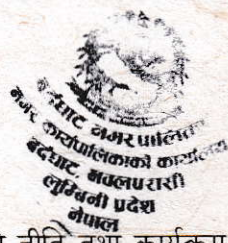 बर्दघाट नगरपालिका
नगर कार्यपालिकाको कार्यालय
बर्दघाट, नवलपरासी
लुम्बिनी प्रदेश
नेपाल
नीति तथा कार्यक्रम